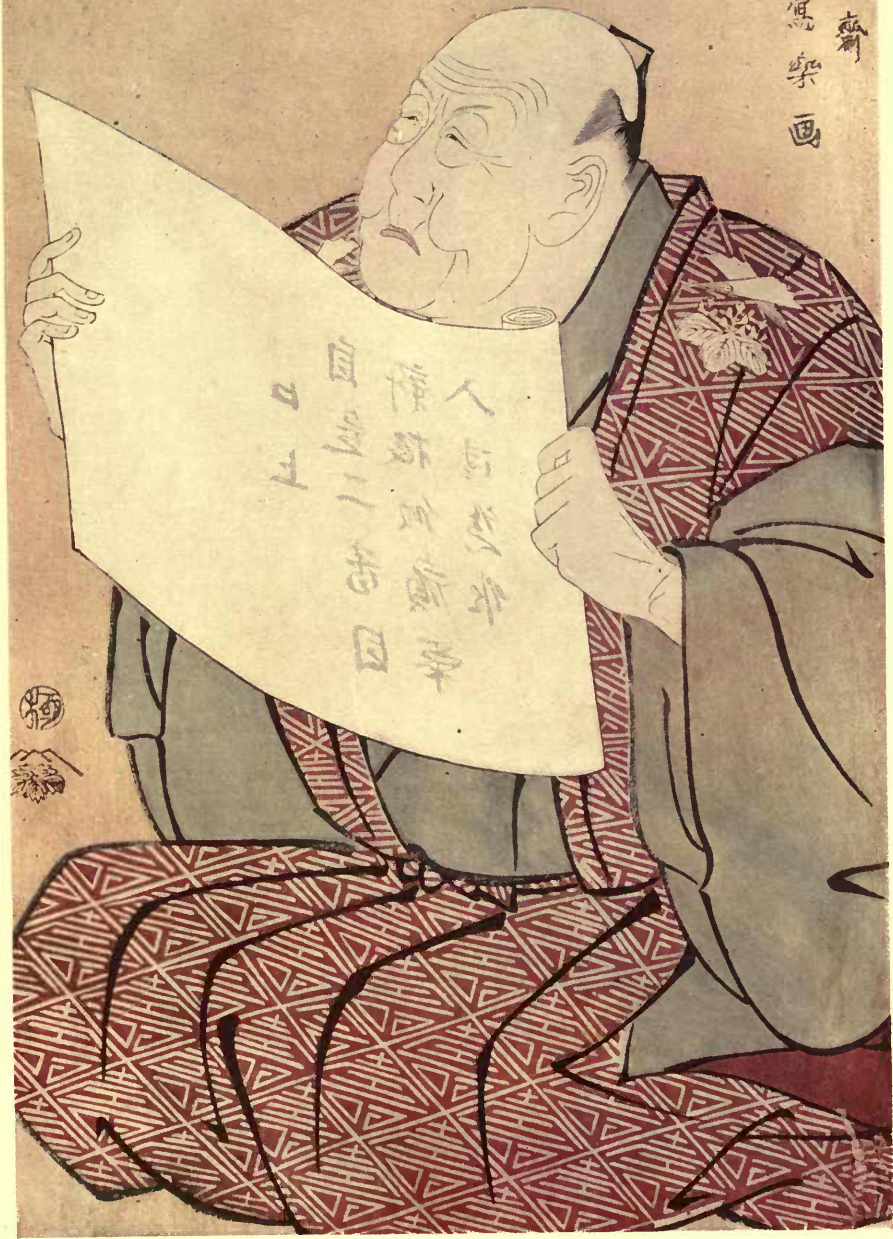 齋
寫樂画
口上
自是二番目
新板似顔奉
入御覧候
極